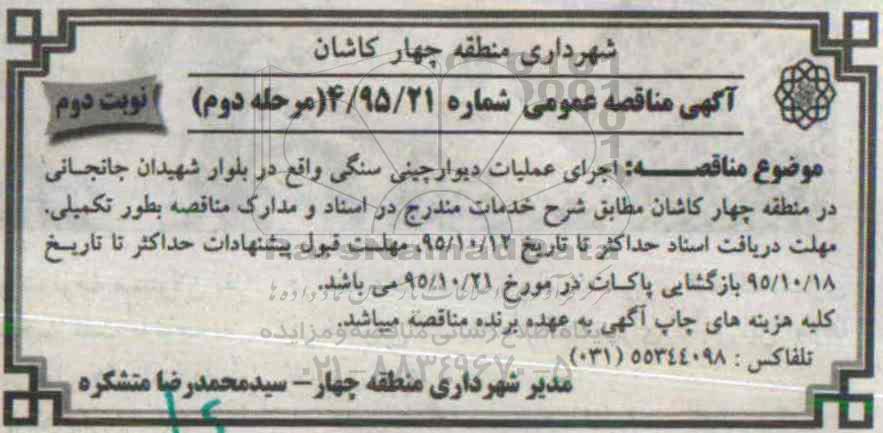 شهرداری منطقه چهار کاشان
آگهی مناقصه عمومی شماره ۴/۹۵/۲۱(مرحله دوم)
نوبت دوم
موضوع مناقصـــــه: اجرای عملیات دیوارچینی سنگی واقع در بلوار شهیدان جانجـانی
در منطقه چهار کاشان مطابق شرح خدمات مندرج در اسناد و مدارک مناقصه بطور تکمیلی.
مهلت دریافت اسناد حداکثر تا تاریخ ۹۵/۱۰/۱۲، مهلـت قبول پیشنهادات حداکثر تا تاریـخ
۹۵/۱۰/۱۸ بازگشایی پاکـات در مورخ ۹۵/۱۰/۲۱ می باشد.
کلیه هزینه های چاپ آگهی به عهده برنده مناقصه میباشد.
تلفاکس : ۵۵۳۴۴۰۹۸ (۰۳۱)
مدیر شهرداری منطقه چهار – سیدمحمدرضا متشکره
ParsNamadData
پایگاه اطلاع رسانی مناقصه و مزایده
۰۲۱-۸۸۳۴۹۶۷۰-۵